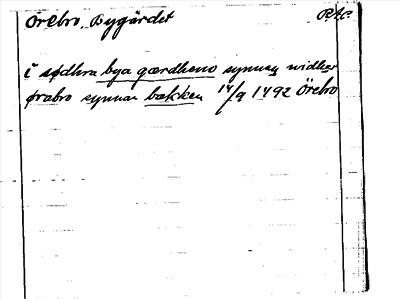 Örebro, Bygärdet R.A.P.
i sødhra bya gærdheno synnan widher
ørabro synnan bækken 14/9 1492 Örebro